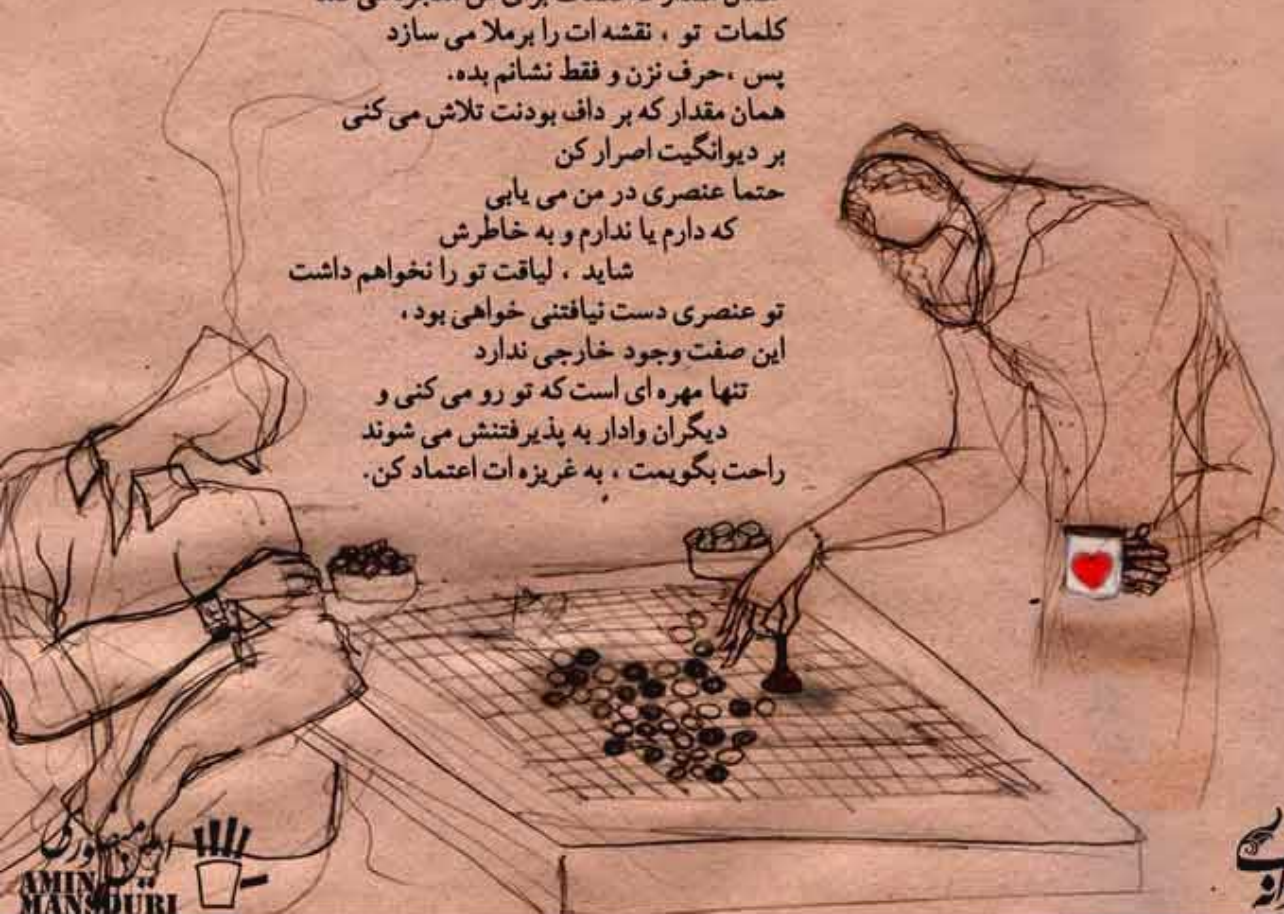 کلمات تو ، نقشه ات را برملا می سازد
پس ،حرف نزن و فقط نشانم بده.
همان مقدار که بر داف بودنت تلاش می کنی
بر دیوانگیت اصرار کن
حتما عنصری در من می یابی
که دارم یا ندارم و به خاطرش
شاید ، لیاقت تو را نخواهم داشت
تو عنصری دست نیافتنی خواهی بود ،
این صفت وجود خارجی ندارد
تنها مهره ای است که تو رو می کنی و
دیگران وادار به پذیرفتنش می شوند
راحت بگویمت ، به غریزه ات اعتماد کن.
امین منصوری
AMIN
MANSOURI